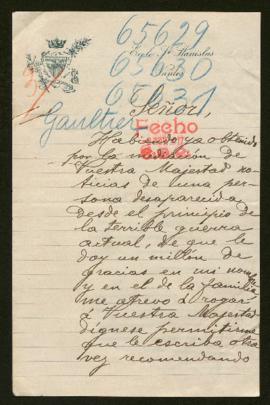 65629
Ecole St Stanislas
65630
Nantes
65631
Señor,
Gaultier
Fecho
Habiendo ya obtenido
por la mediación de
Vuestra Majestad no-
ticias de una per-
sona desaparecida
desde el principio de
la terrible guerra
actual, de que le
doy un millón de
gracias en mi nombre
y en el de la familia
me atrevo á rogar
á Vuestra Majestad
dígnese permitirme
que le escriba otra
vez recomendando